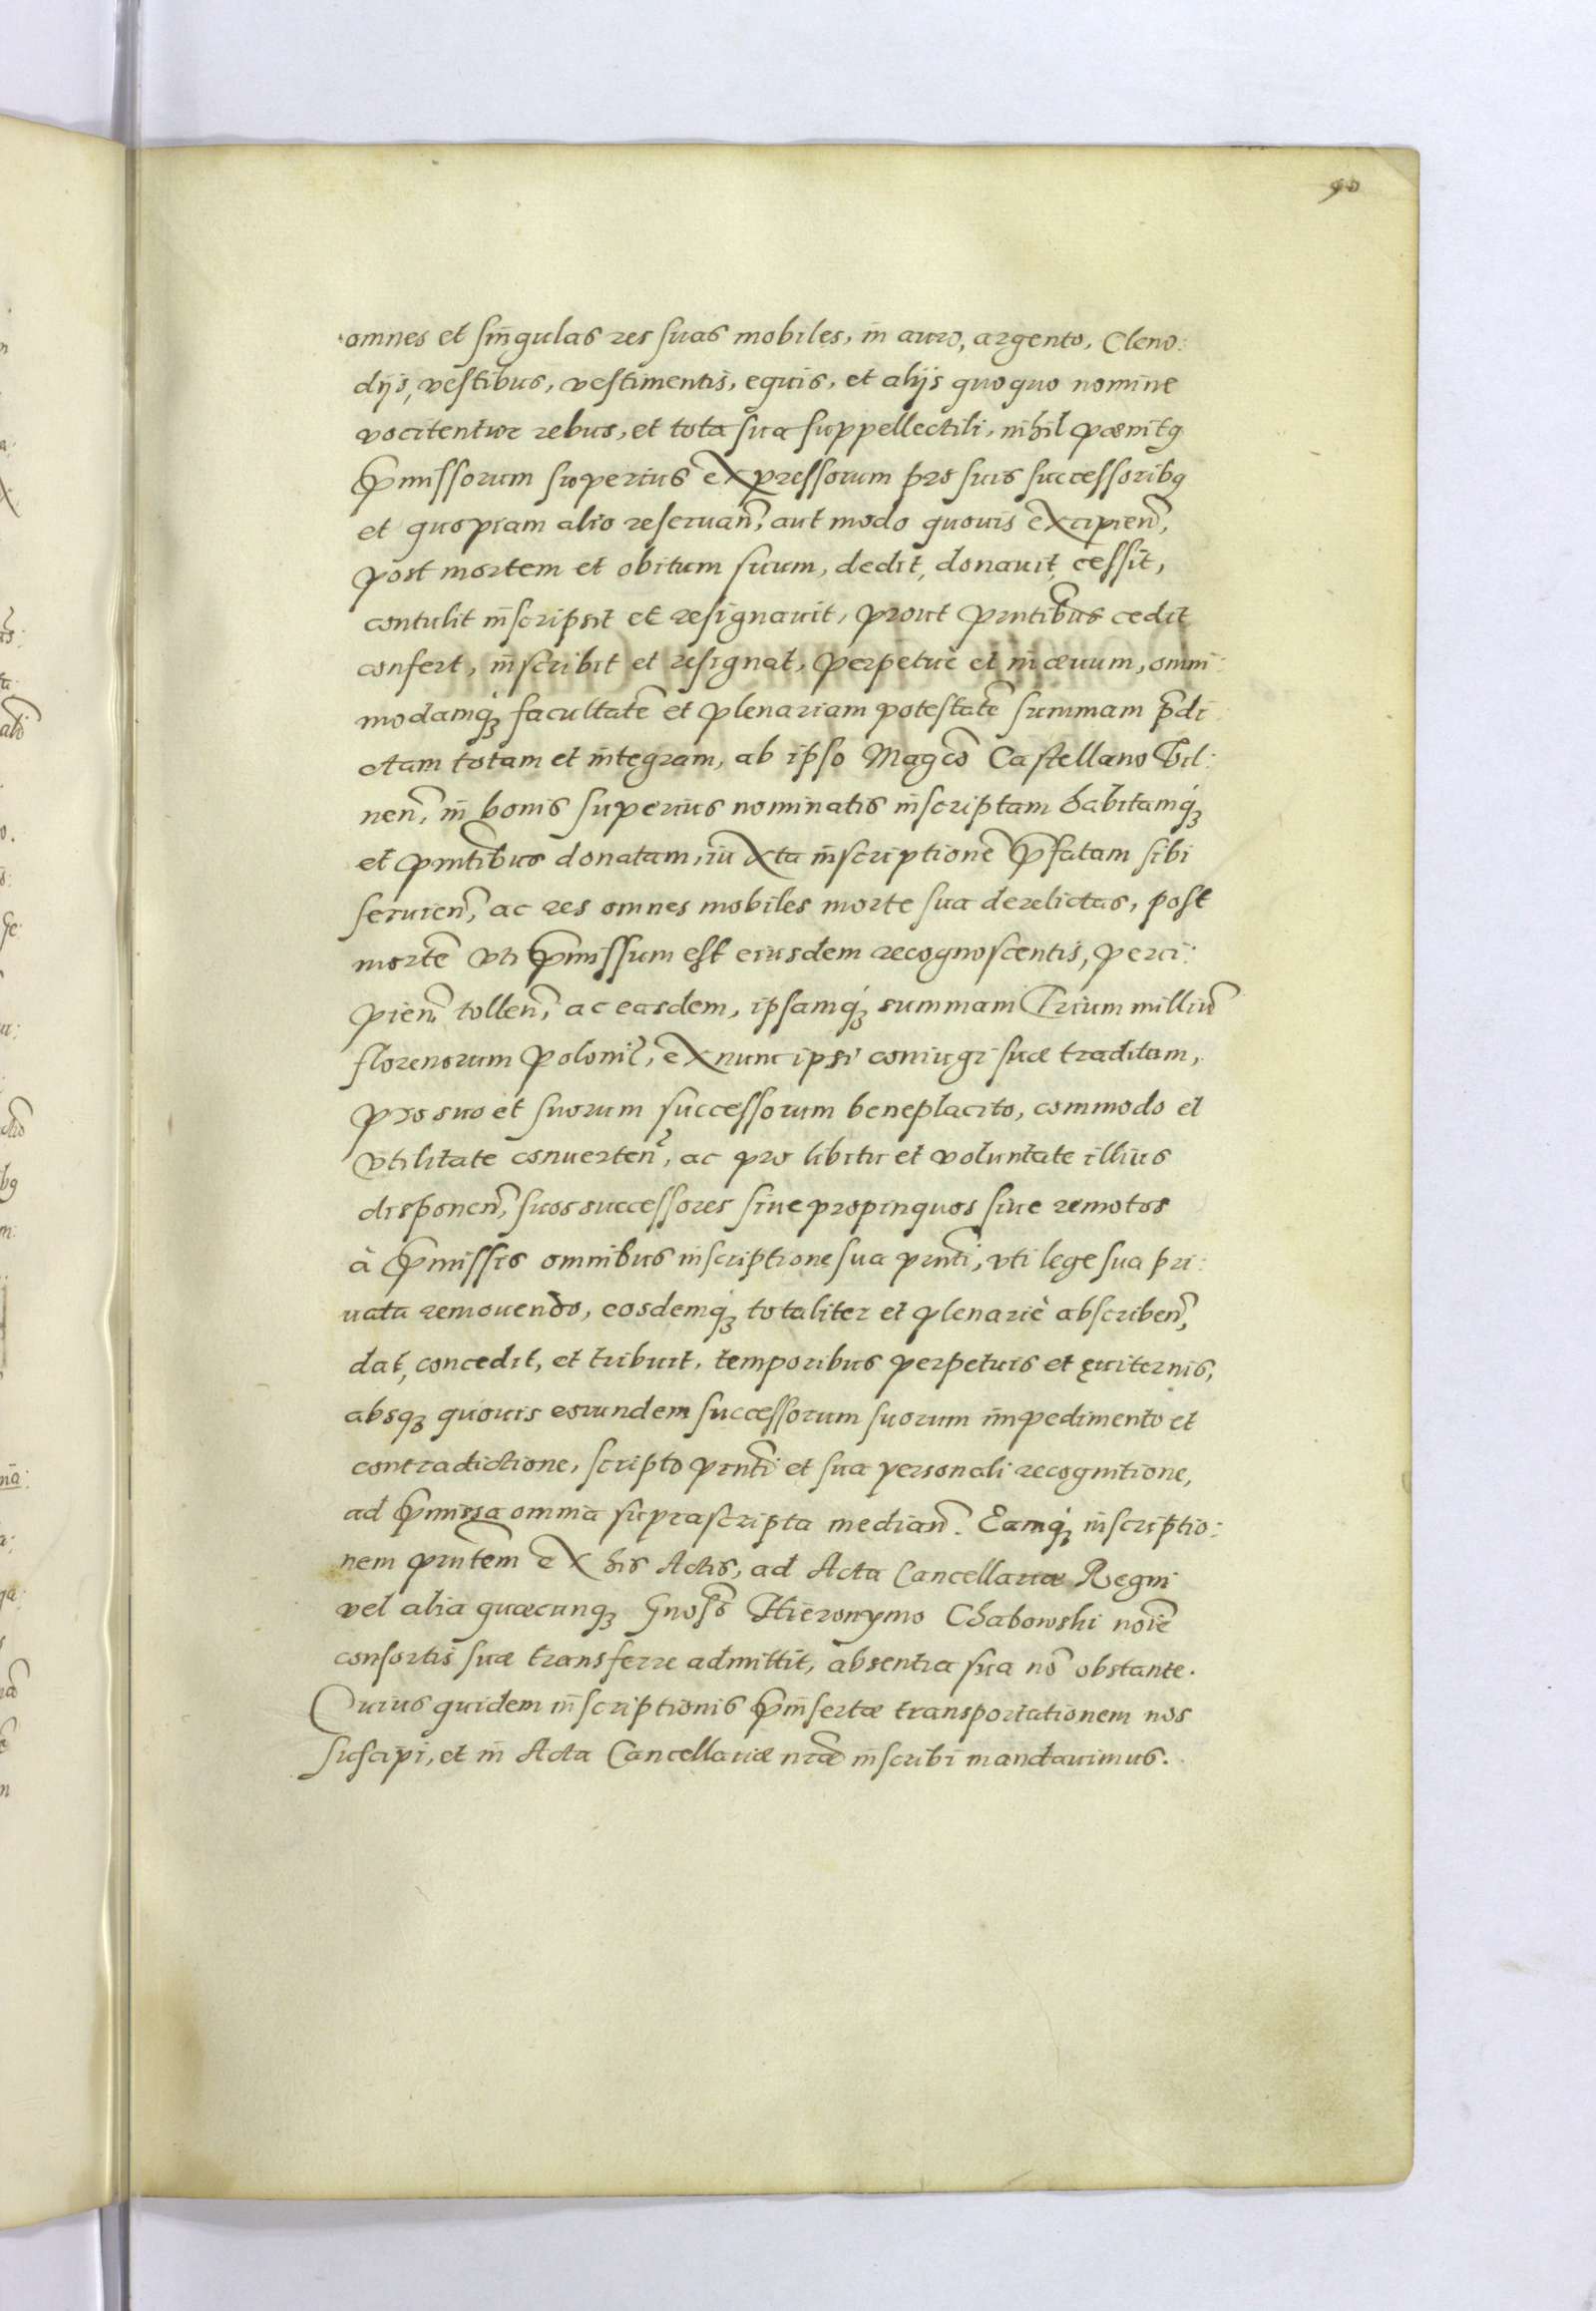 90
omnes et singulas res suas mobiles, in auro, argento, Cleno:
dijs, vestibus, vestimentis, equis, et alijs quoquo nomine
vocitentur rebus, et tota sua suppellectili, nihil pœnitꝯ
p̄missorum superius expressorum pro suis successoribꝯ
et quopiam alio reseruan̄, aut modo quouis excipien̄,
post mortem et obitum suum, dedit, donauit, cessit,
contulit inscripsit et resignauit, prout pn̄tibus cedit
confert, inscribit et resignat, perpetuè et in æuum, omni:
modamq́ꝫ facultatē et plenariam potestatē summam p̄di:
ctam totam et integram, ab ipso Magc̄o Castellano Vil:
nen̄, in bonis superius nominatis inscriptam habitamq́ꝫ
et pn̄tibus donatam, iuxta inscriptionē p̄fatam sibi
seruien̄, ac res omnes mobiles morte sua derelictas, post
mortē vti p̄missum est eiusdem recognoscentis, perci:
pien̄ tollen̄, ac easdem, ipsamq́ꝫ summam Trium milliū
florenorum Poloni̅, ex nunc ipsi coniugi suæ traditam,
pro suo et suorum successorum beneplacito, commodo et
vtilitate conuerten̄, ac pro libitu et voluntate illius
disponen̄, suos successores siue propinquos siue remotos
à p̄missis omnibus inscriptione sua pn̄ti, vti lege sua pri:
uata remouendo, eosdemq́ꝫ totaliter et plenariè abscriben̄,
dat, concedit, et tribuit, temporibus perpetuis et ęuiternis,
absqꝫ quouis eorundem successorum suorum impedimento et
contradictione, scripto pn̄ti et sua personali recognitione,
ad p̄missa omnia suprascripta median̄. Eamq́ꝫ inscriptio:
nem pn̄tem ex his Actis, ad Acta Cancellariæ Regni
vel alia quæcunqꝫ Gnōso Hieronymo Chabowski noīe
consortis suæ transferre admittit, absentia sua nō obstante.
Cuius quidem inscriptionis p̄insertæ transportationem nos
suscipi, et in Acta Cancellariæ nr̄æ inscribi mandauimus.